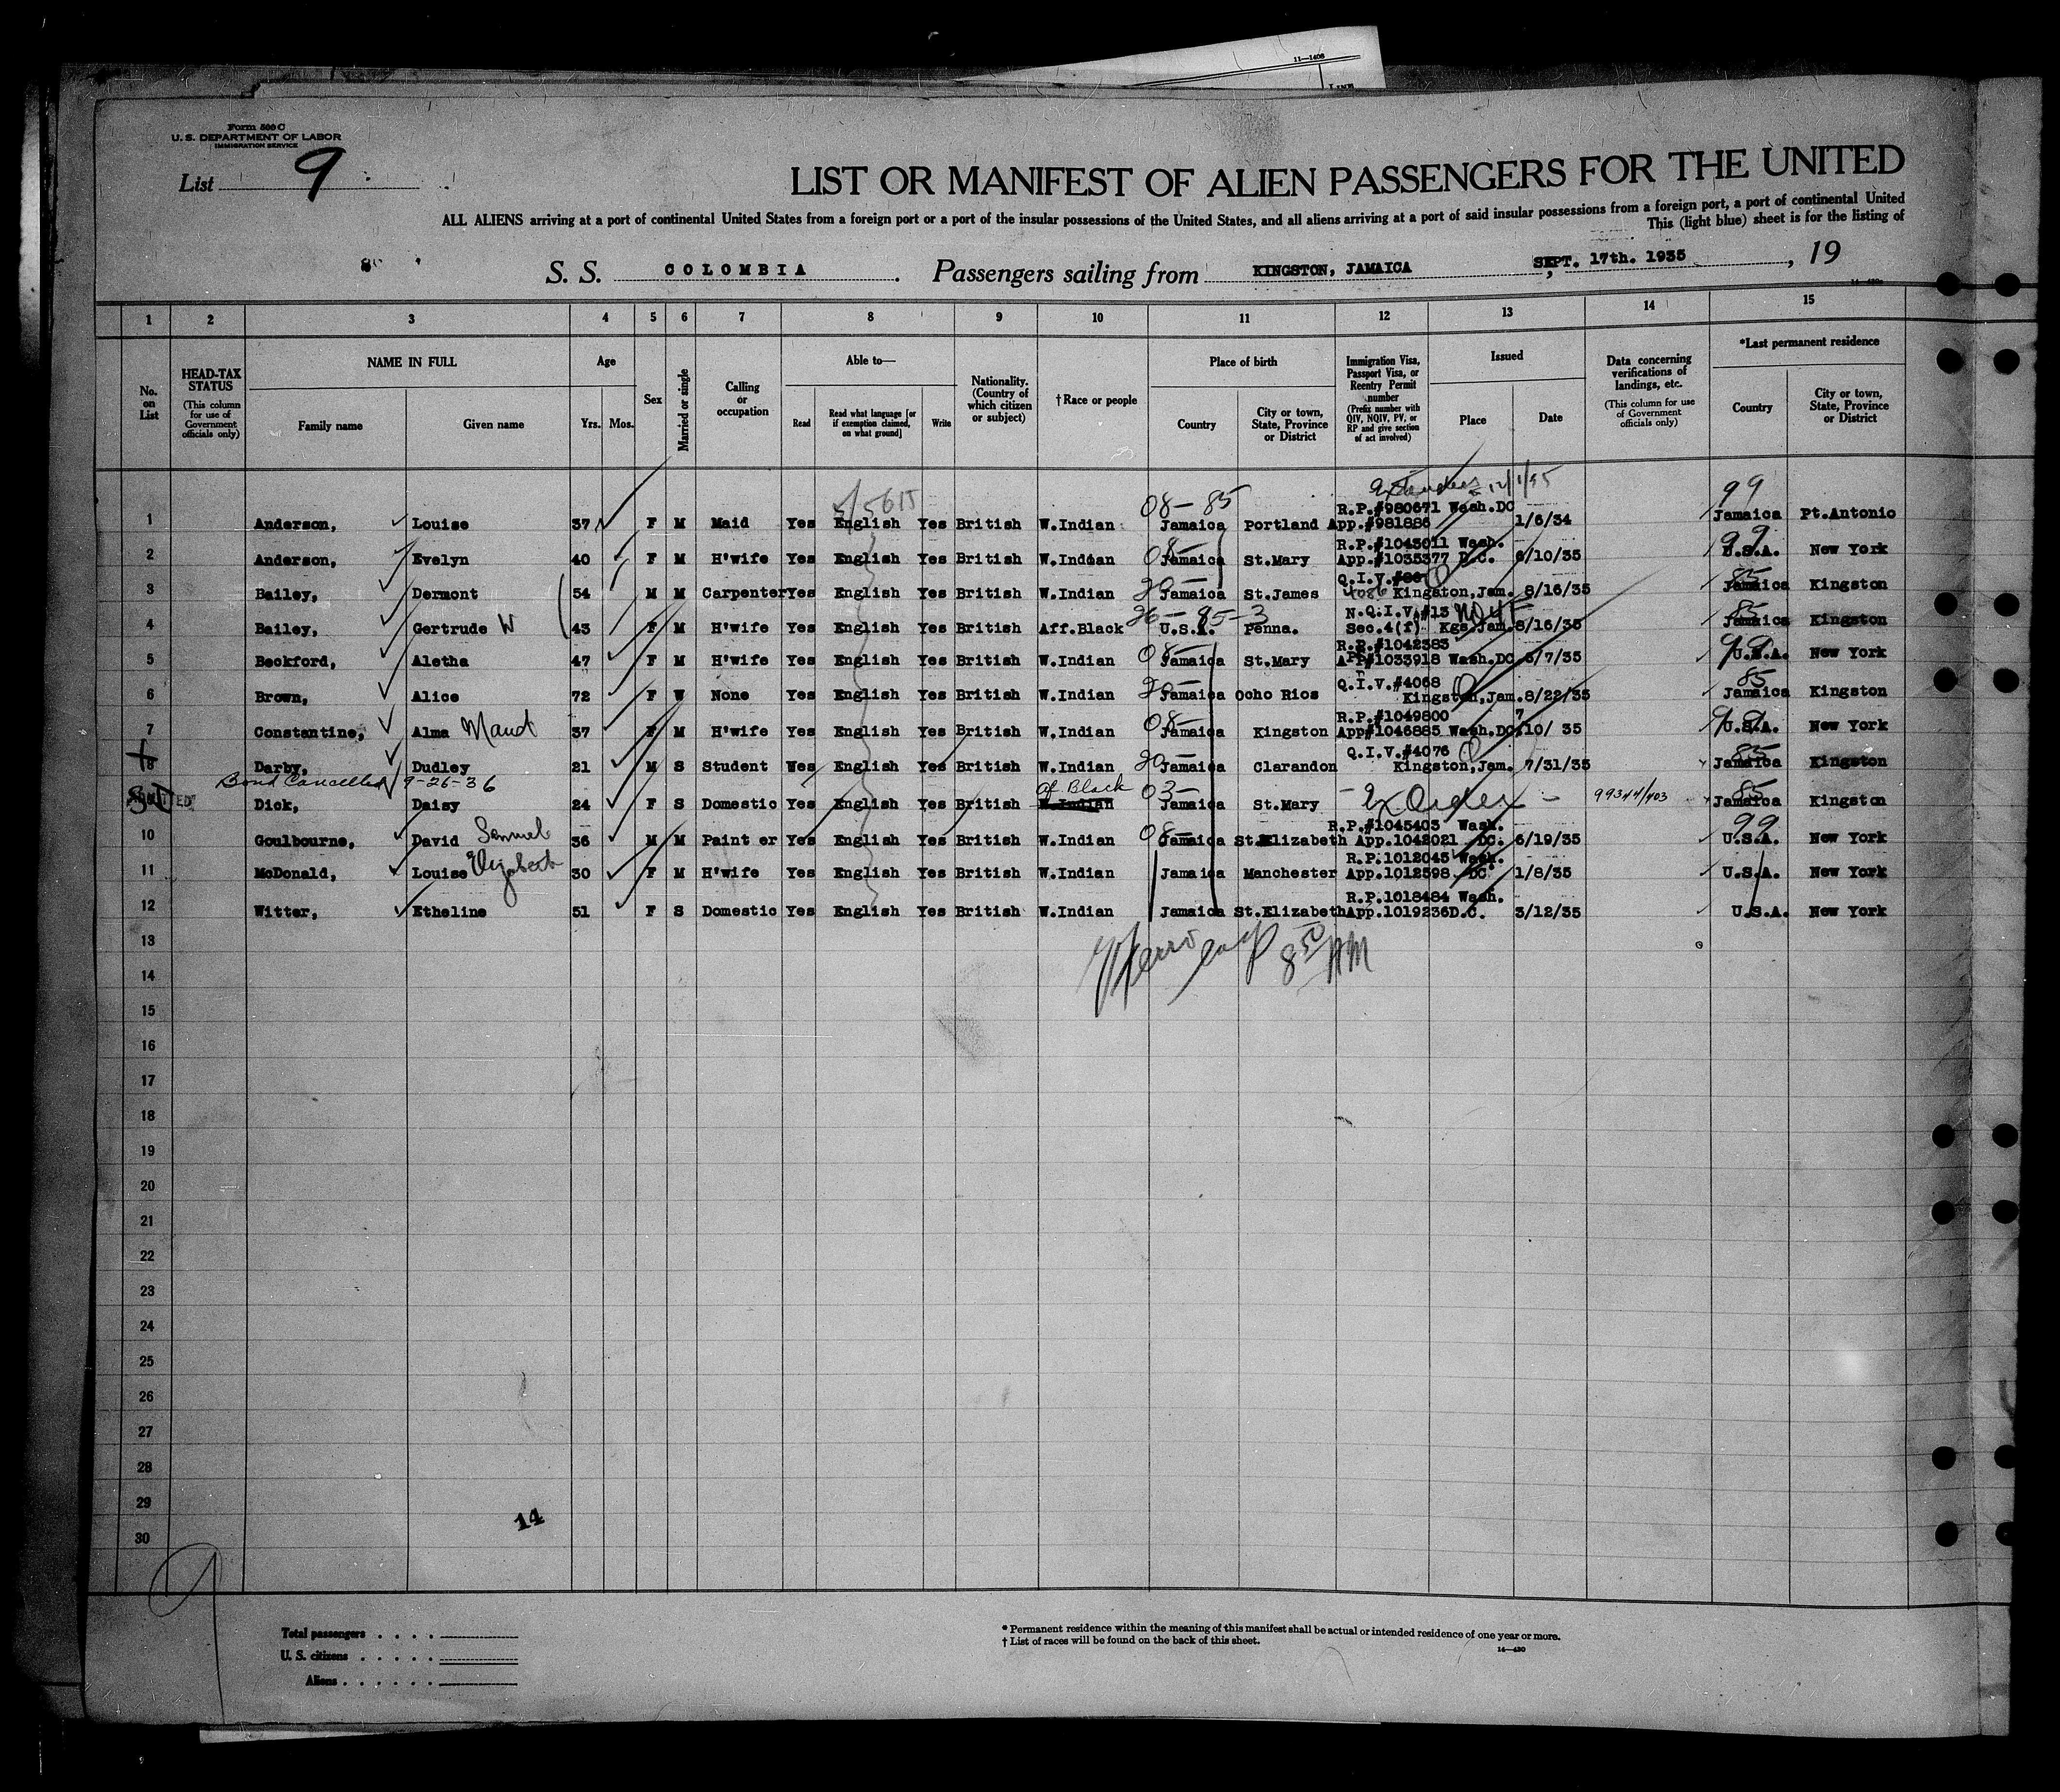 11—1406
LINE
Form 500 C
U. S. DEPARTMENT OF LABOR
IMMIGRATION SERVICE
List 9
LIST OR MANIFEST OF ALIEN PASSENGERS FOR THE UNITED
ALL ALIENS arriving at a port of continental United States from a foreign port or a port of the insular possessions of the United States, and all aliens arriving at a port of said insular possessions from a foreign port, a port of continental United
This (light blue) sheet is for the listing of
S. S. COLOMBIA. Passengers sailing from KINGSTON, JAMAICA, SEPT. 17th. 1935, 19
1 2 3 4 5 6 7 8 9 10 11 12 13 14 15
No. on List
HEAD-TAX STATUS (This column for use of Government officials only)
NAME IN FULL
Family name Given name
Age
Yrs. Mos.
Sex
Married or single
Calling or occupation
Able to—
Read
Read what language [or if exemption claimed, on what ground]
Write
Nationality. (Country of which citizen or subject)
†Race or people
Place of birth
Country
City or town, State, Province or District
Immigration Visa, Passport Visa, or Reentry Permit number (Prefix number with QIV, NQIV, PV, or RP and give section of act involved)
Issued
Place Date
Data concerning verifications of landings, etc. (This column for use of Government officials only)
*Last permanent residence
Country
City or town, State, Province or District
08—85 99
R.P.#980671 Wash.DC
1 Anderson, Louise 37 F M Maid Yes English Yes British W.Indian Jamaica Portland App.#981886 1/6/34 Jamaica Pt.Antonio
R.P.#1043011 Wash.
2 Anderson, Evelyn 40 F M H'wife Yes English Yes British W.Inddan Jamaica St.Mary App.#1035377 D.C. 6/10/35 U.S.A. New York
3 Bailey, Dermont 54 M M Carpenter Yes English Yes British W.Indian Jamaica St.James 4086 Kingston,Jam. 8/16/35 Jamaica Kingston
N.Q.I.V.#13
4 Bailey, Gertrude W 43 F M H'wife Yes English Yes British Aff.Black U.S.A. Penna. Sec.4(f) Kgs.Jam. 8/16/35 Jamaica Kingston
R.P.#1042383
5 Beckford, Aletha 47 F M H'wife Yes English Yes British W.Indian Jamaica St.Mary App#1033918 Wash.DC 6/7/35 U.S.A. New York
Q.I.V.#4068
6 Brown, Alice 72 F W None Yes English Yes British W.Indian Jamaica Ocho Rios Kingston,Jam. 8/22/35 Jamaica Kingston
R.P.#1049800
7 Constantine, Alma Maud 37 F M H'wife Yes English Yes British W.Indian Jamaica Kingston App#1046885 Wash.DC 7/10/ 35 U.S.A. New York
Q.I.V.#4076
8 Darby, Dudley 21 M S Student Wes English Yes British W.Indian Jamaica Clarandon Kingston,Jam. 7/31/35 Jamaica Kingston
Bond Cancelled 9-26-36
Af Black
Dick, Daisy 24 F S Domestic Yes English Yes British W.Indian Jamaica St.Mary 99344/403 Jamaica Kingston
R.P.#1045403 Wash.
10 Goulbourne, David Samuel 36 M M Paint er Yes English Yes British W.Indian Jamaica St.Elizabeth App.1042021 DC. 6/19/35 U.S.A. New York
R.P.1012045 Wash.
11 McDonald, Louise Elizabeth 30 F M H'wife Yes English Yes British W.Indian Jamaica Manchester App.1012598 DC 1/8/35 U.S.A. New York
R.P.1018484 Wash.
12 Witter, Etheline 51 F S Domestic Yes English Yes British W.Indian Jamaica St.Elizabeth App.1019236D.C. 3/12/35 U.S.A. New York
13
8 50 AM
14
15
16
17
18
19
20
21
22
23
24
25
26
27
28
29
14
30
9
Total passengers
U. S. citizens
Aliens
* Permanent residence within the meaning of this manifest shall be actual or intended residence of one year or more.
† List of races will be found on the back of this sheet.
14—430